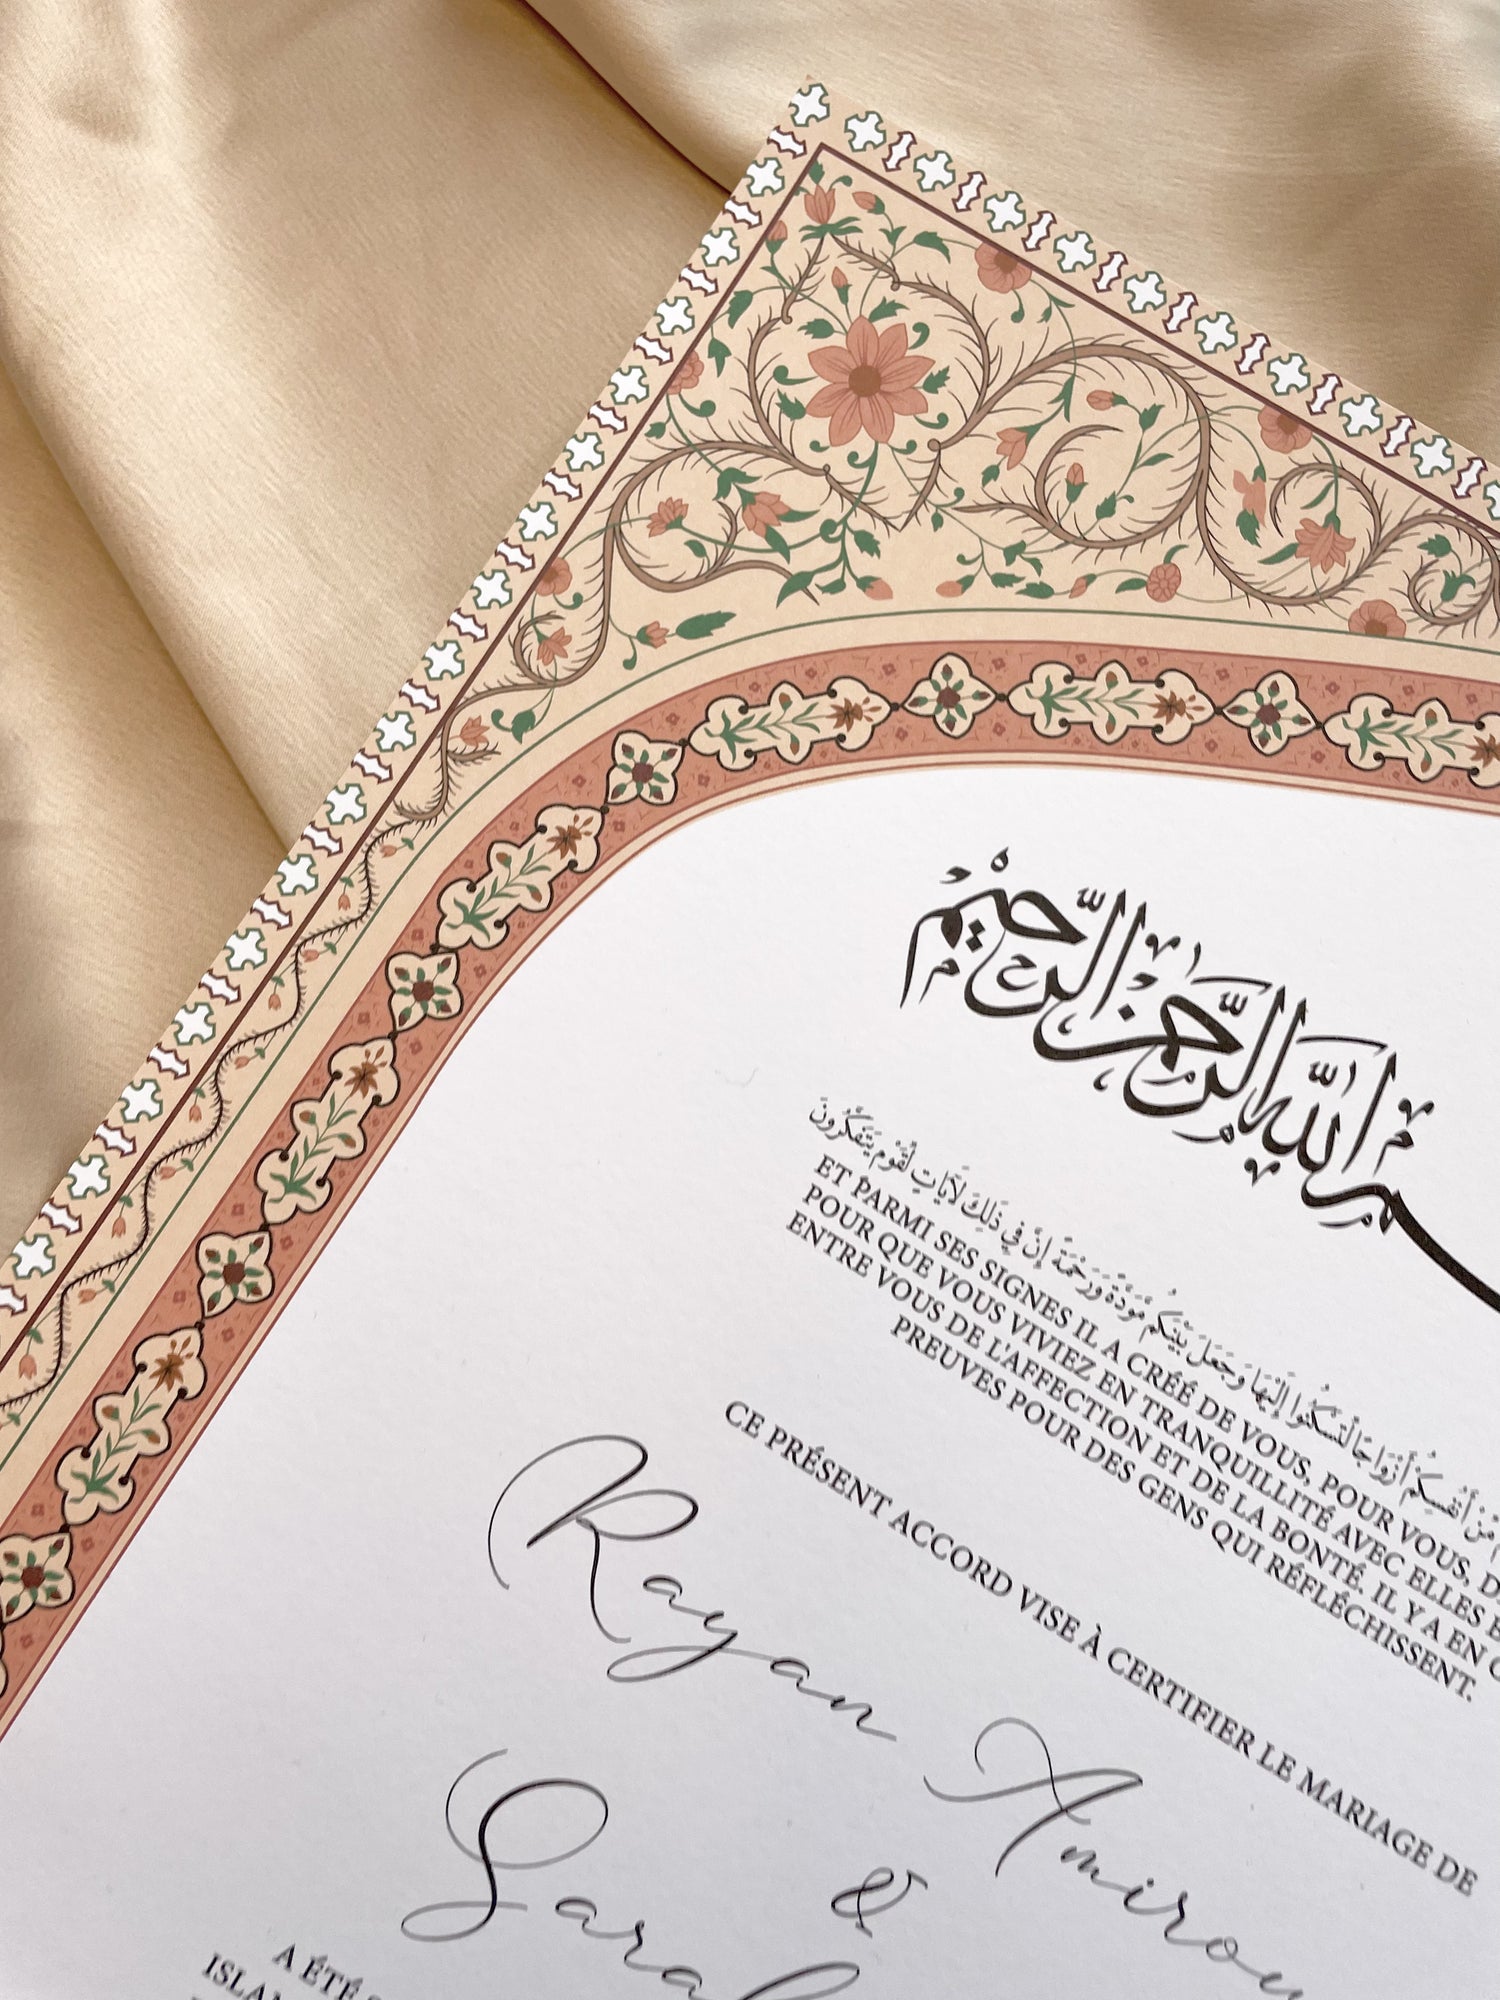 بسم الله الرحمن الرحيم
مِّنْ أَنفُسِكُمْ أَزْوَاجًا لِّتَسْكُنُوا إِلَيْهَا وَجَعَلَ بَيْنَكُم مَّوَدَّةً وَرَحْمَةً إِنَّ فِي ذَٰلِكَ لَآيَاتٍ لِّقَوْمٍ يَتَفَكَّرُونَ
ET PARMI SES SIGNES IL A CRÉÉ DE VOUS, POUR VOUS, D
POUR QUE VOUS VIVIEZ EN TRANQUILLITÉ AVEC ELLES E
ENTRE VOUS DE L'AFFECTION ET DE LA BONTÉ. IL Y A EN C
PREUVES POUR DES GENS QUI RÉFLÉCHISSENT.
CE PRÉSENT ACCORD VISE À CERTIFIER LE MARIAGE DE
Rayan Amirou
&
Sarah
A ÉTÉ
ISLAM